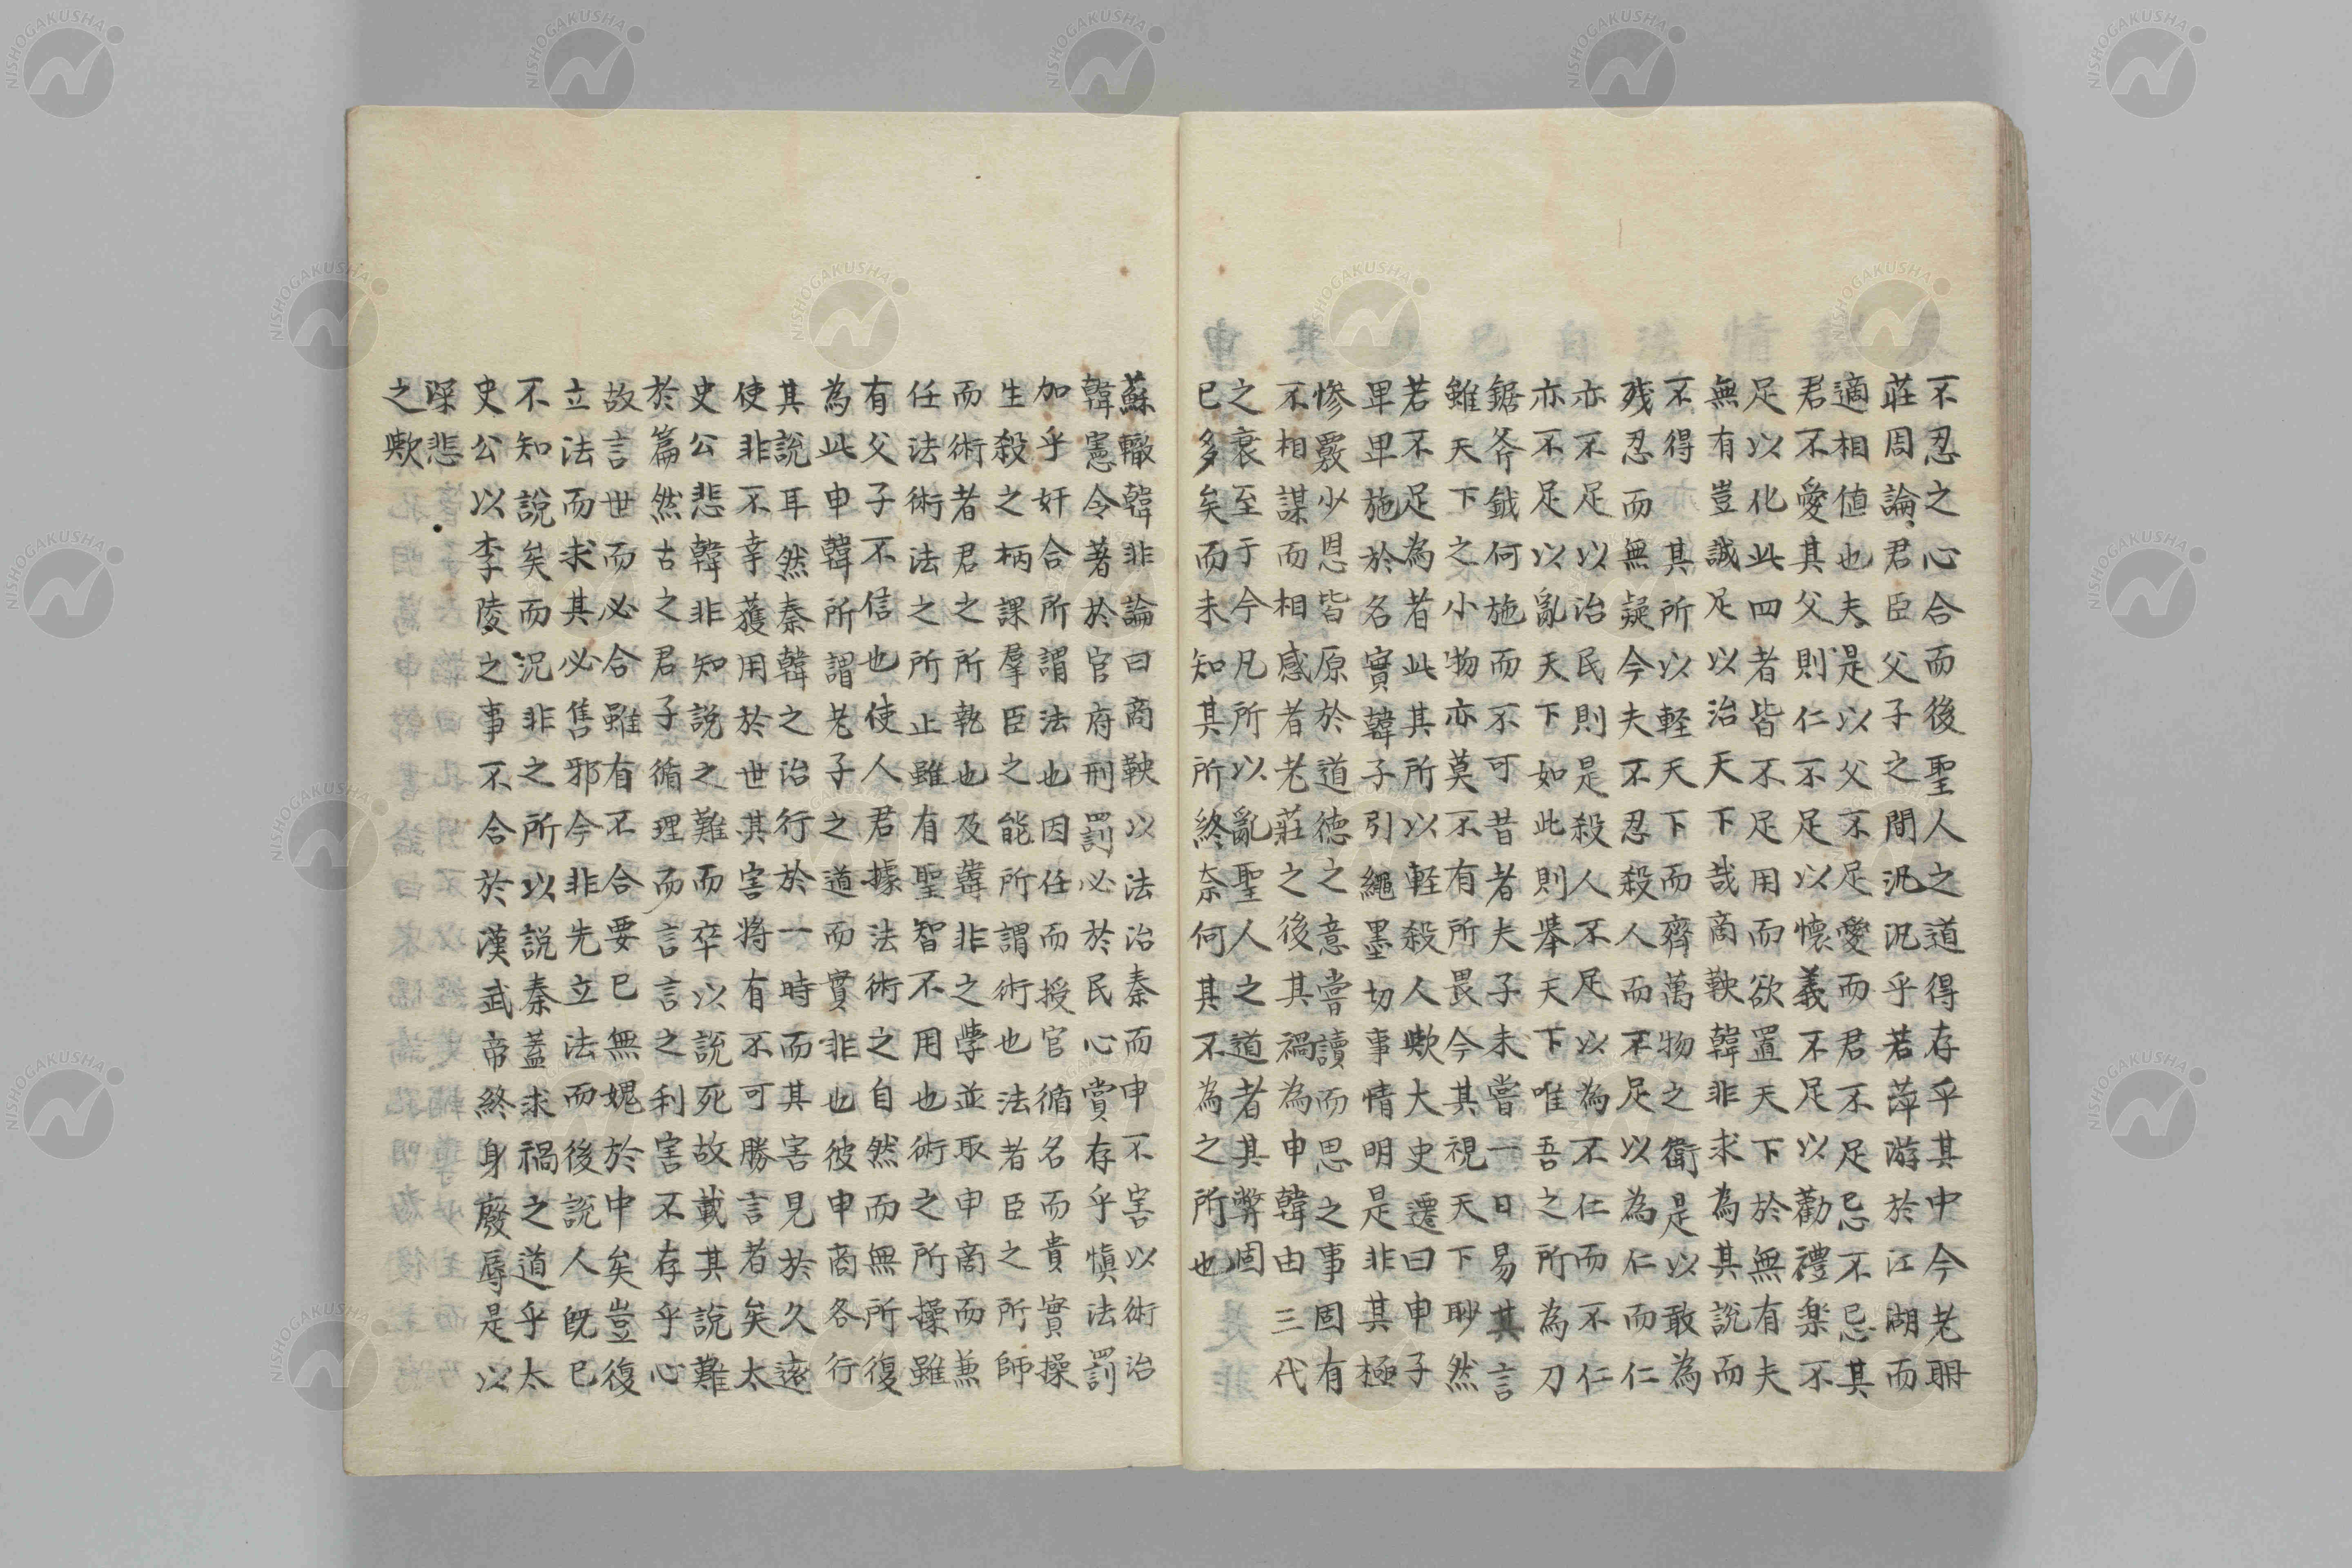 不忍之心合而後聖人之道得存乎其中今老耼
莊周論君臣父子之間汎汎乎若萍游於江湖而
適相値也夫是以父不足愛而君不足忌不忌其
君不愛其父則仁不足以懷義不足以勸禮楽不
足以化此四者皆不足用而欲置天下於無有夫
無有豈誠足以治天下哉商鞅韓非求為其説而
不得其所以軽天下而齊萬物之衛是以敢為
残忍而無疑今夫不忍殺人而不足以為仁而仁
亦不足以治民則是殺人不足以為不仁而不仁
亦不足以亂天下如此則舉天下唯吾之所為刀
鋸斧鉞何施而不可昔者夫子未嘗一日易其言
雖天下之小物亦莫不有所畏今其視天下眇然
若不足為者此其所以軽殺人歟大史遷曰申子
卑卑施於名實韓子引繩墨切事情明是非其極
惨覈少恩皆原於道徳之意嘗讀而思之事固有
不相謀而相感者老莊之後其禍為申韓由三代
之衰至于今凡所以亂聖人之道者其弊固
已多矣而未知其所終奈何其不為之所也
蘇轍韓非論曰商鞅以法治秦而申不害以術治
韓憲令著於官府刑罰必於民心賞存乎愼法罰
加乎奸合所謂法也因任而授官循名而貴實操
生殺之柄課羣臣之能所謂術也法者臣之所師
而術者君之所執也及韓非之學並取申商而兼
任法術法之所止雖有聖智不用也術之所操雖
有父子不信也使人君據法術之自然而無所復
為此申韓所謂老子之道而實非也彼申商各行
其說耳然秦韓之治行於一時而其害見於久遠
使非不幸獲用於世其害将有不可勝言者矣太
史公悲韓非知說之難而卒以説死故載其說難
於篇然古之君子循理而言言之利害不存乎心
故言世而必合雖有不合要已無媿於中矣豈復
立法而求其必售邪今非先立法而後説人既已
不知說矣而況非之所以説秦蓋求禍之道乎太
史公以李陵之事不合於漢武帝終身廢辱是以
深悲
之歟